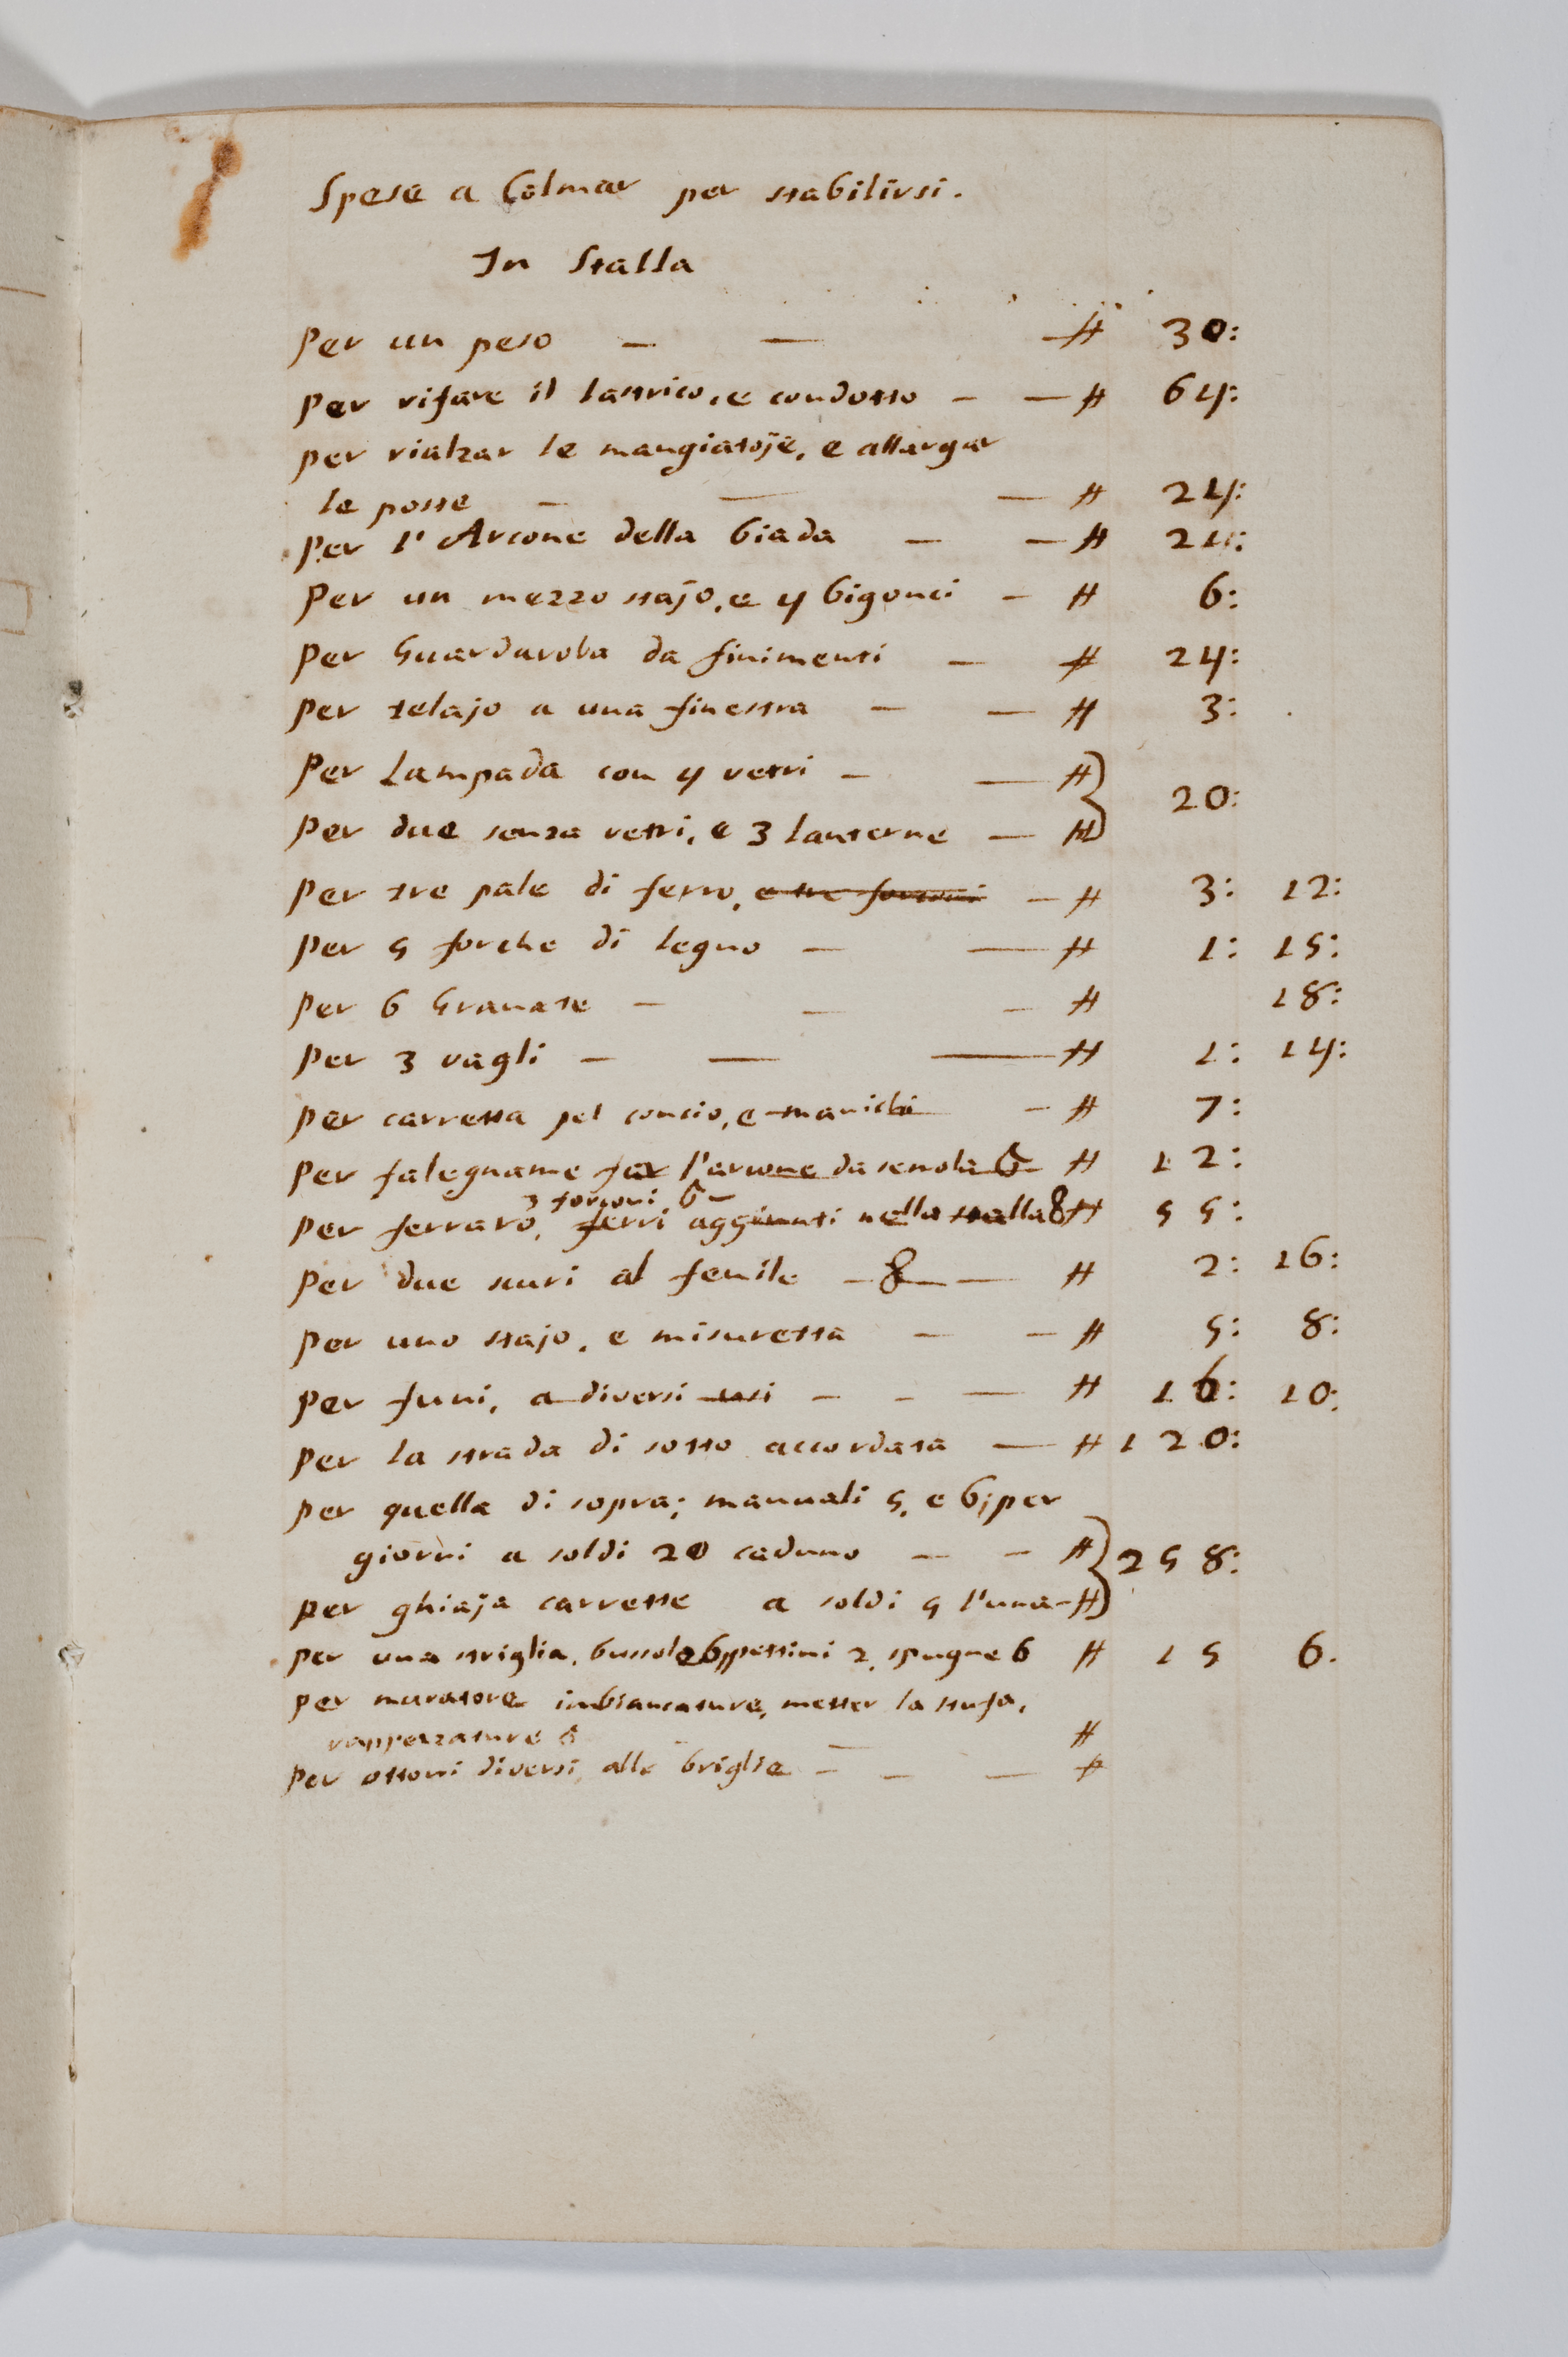 Spese a Colmar per stabilirsi.
In Stalla
Per un peso — — —# 30:
Per rifare il lastrico, e condotto — —# 64:
Per rialzar le mangiatoje, e allargar
le poste — — —# 24:
Per l'Arcone della biada — —# 24:
Per un mezzo stajo, e 4 bigonci — # 6:
Per Guardaroba da finimenti — # 24:
Per telajo a una finestra — —# 3:
Per Lampada con 4 vetri — —# } 20:
Per due senza vetri, e 3 lanterne —#
Per tre pale di ferro, e tre forconi —# 3: 12:
Per 5 forche di legno — —# 1: 15:
Per 6 Granate — — —# 18:
Per 3 vagli — — —# 1: 14:
Per carretta pel concio, e manichi —# 7:
Per falegname far l'arcone da semola 6 # 12:
3 forconi 6
Per ferraro, ferri aggiunti nella stalla 8 # 55:
Per due scuri al fenile —8— # 2: 16:
Per uno stajo, e misuretta — —# 5: 8:
Per funi, a diversi usi — — —# 16: 10:
Per la strada di sotto accordata —# 120:
Per quella di sopra; manuali 5, e 6; per
giorni a soldi 20 caduno — —# } 258:
Per ghiaja carrette a soldi 5 l'una—#
Per una striglia, bussole 6, pettini 2, spugne 6 # 15 6.
Per muratore imbiancature, metter la stufa,
rappezzature — #
Per ottoni diversi alle briglie — — —#